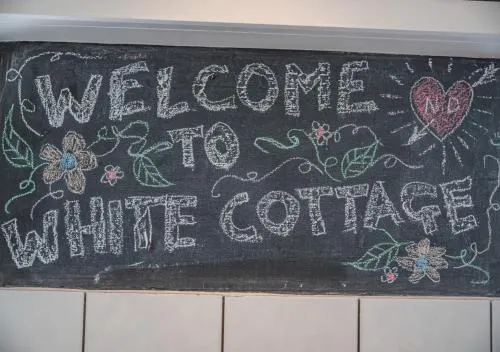 WELCOME
TO
WHITE COTTAGE
ND